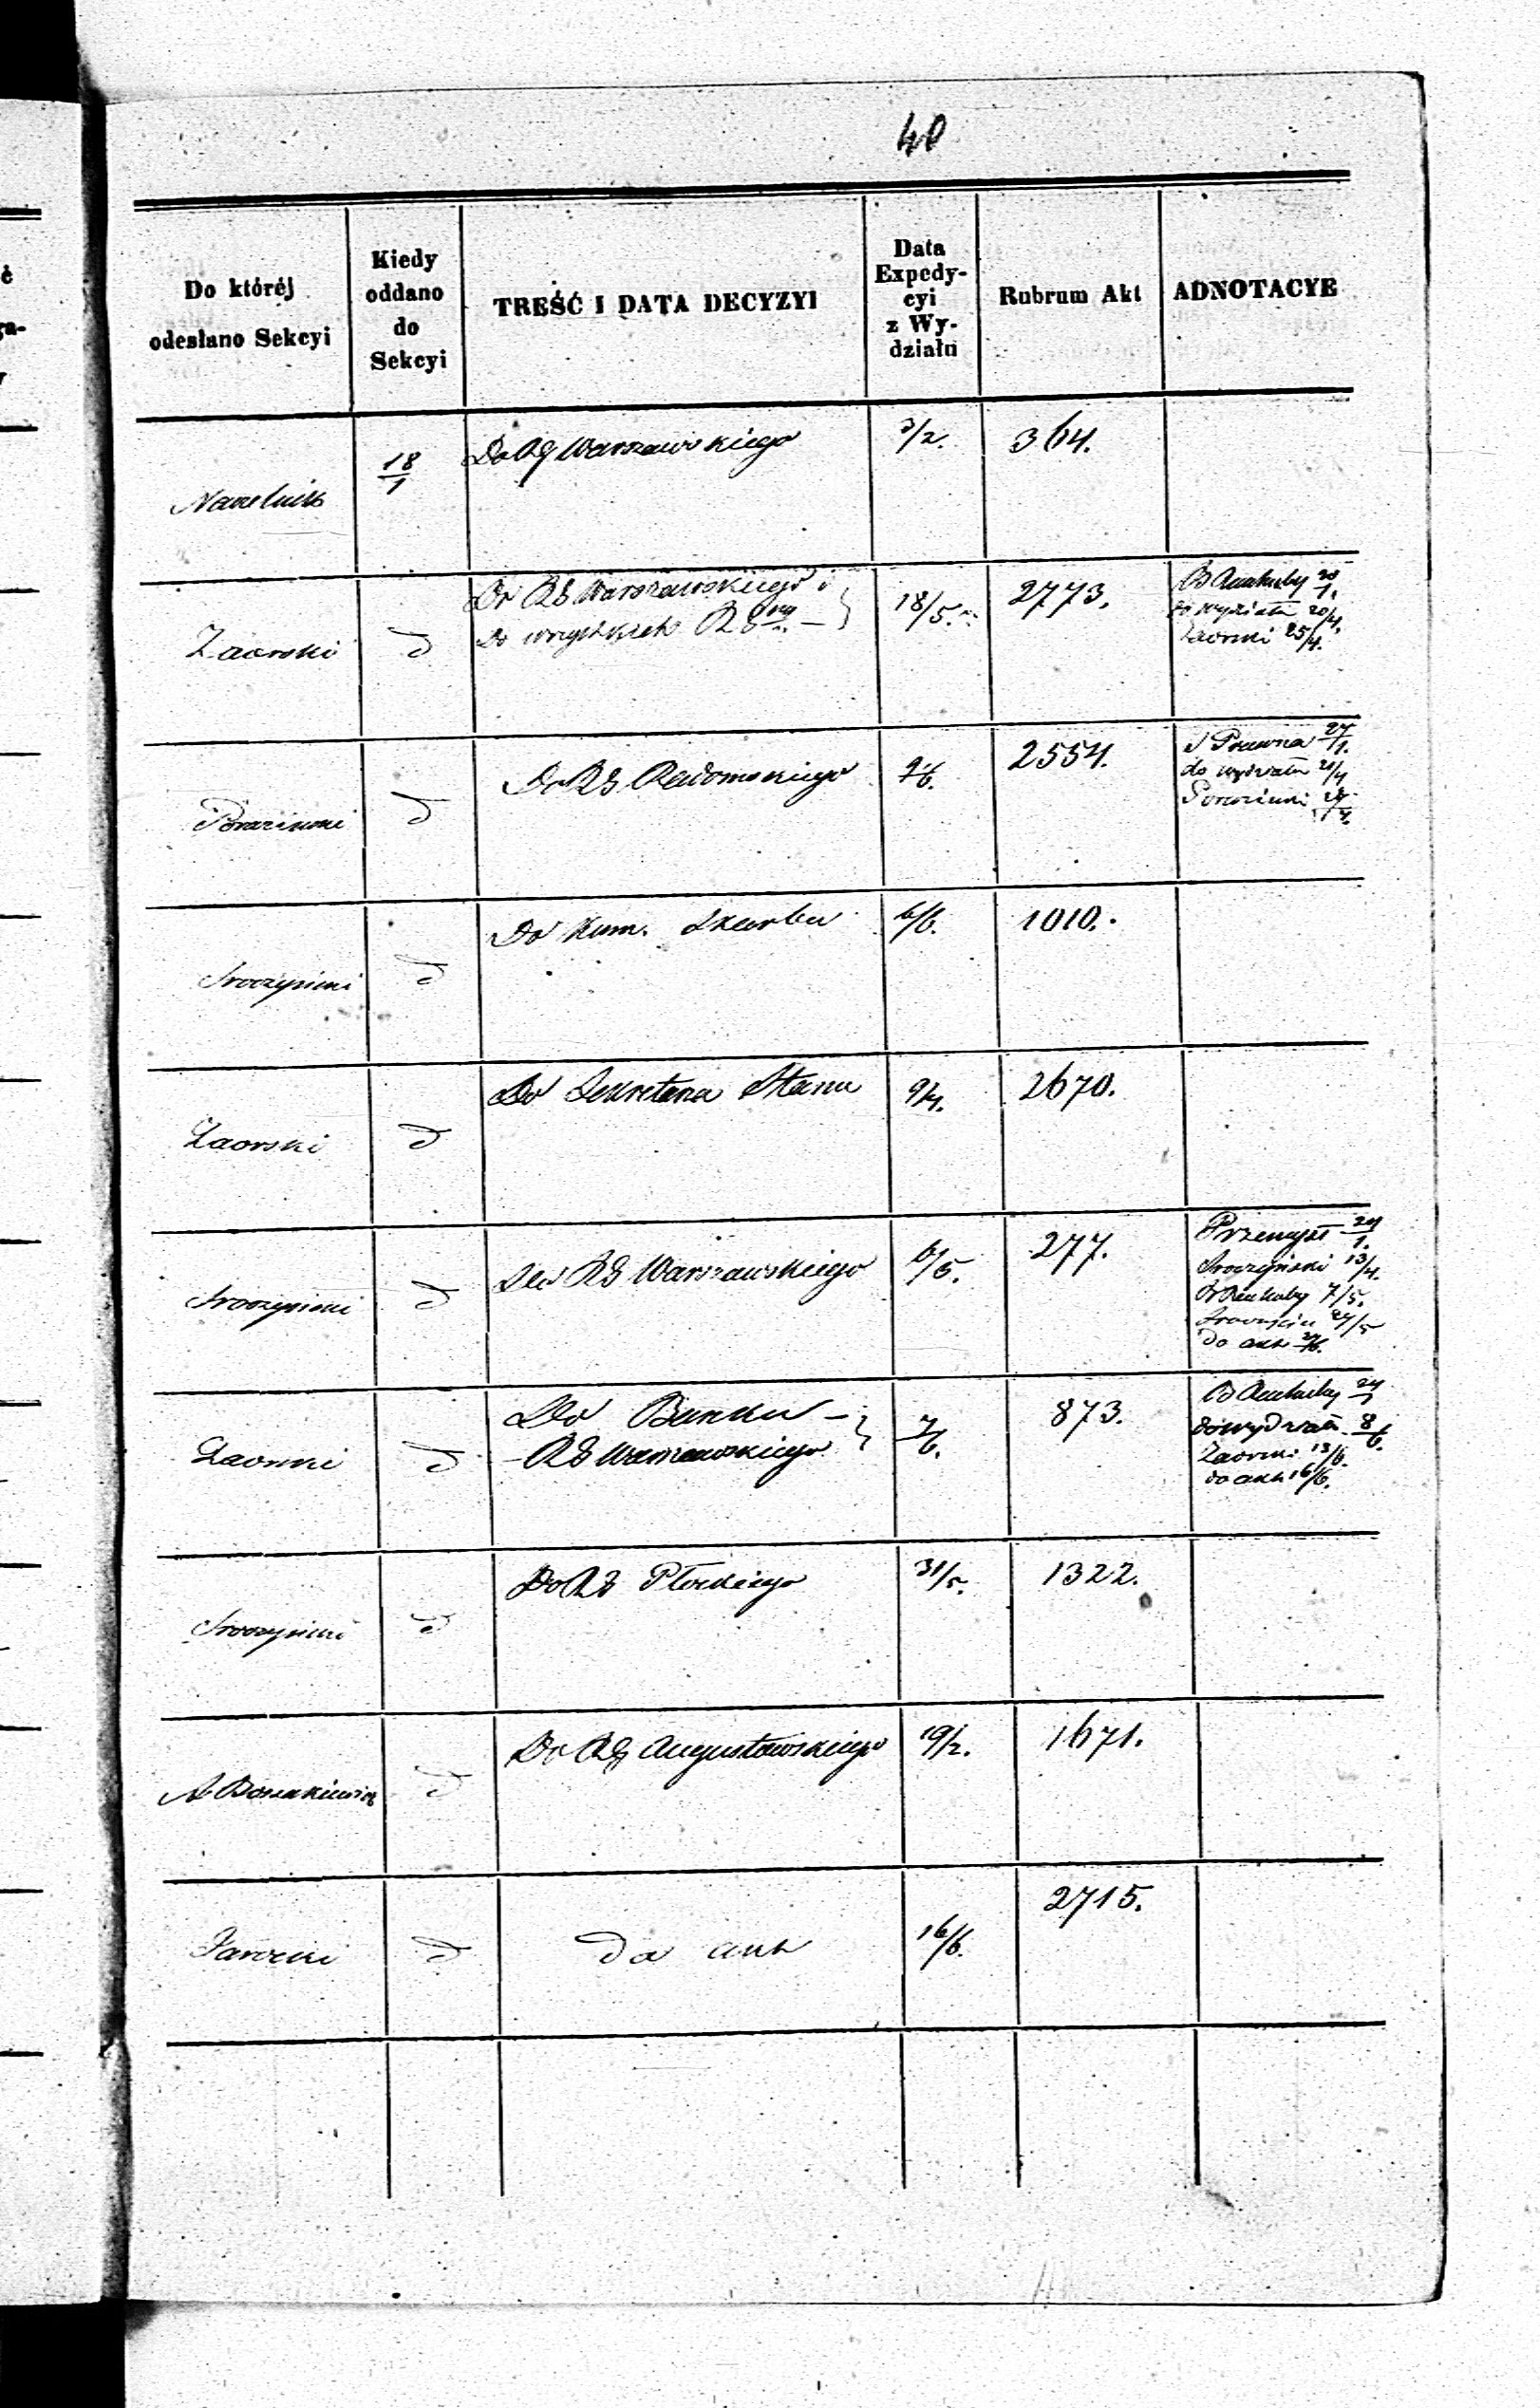 40
Do któréj odesłano Sekcyi
Kiedy oddano do Sekcyi
TREŚĆ I DATA DECYZYI
Data Expedycyi z Wydziału
Rubrum Akt
ADNOTACYE
Naczelnik
18/1
Do RG Warszawskiego
3/2.
364.
Zaorski
d
Do RG Warszawskiego i
Do wszystkich RG
18/5.
2773.
do wydziału 20/4.
Zaorski 25/4.
d
Do RG Radomskiego
2554.
Prawna 27/1.
do wydziału 21/4
d
Do Kom. Skarbu
6/6.
1010.
Zaorski
d
Do Sekretarza Stanu
9/4.
2670.
Sroczyński
d
Do RG Warszawskiego
6/5.
277.
Przemysł 24/1.
Sroczyński 13/4.
7/5.
24/5
do akt
Zaorski
d
Do Banku
RG Warszawskiego
7/6.
873.
24/1
do wydziału 8/6.
Zaorski 13/6.
do akt 16/6.
Sroczyński
d
Do RG Płockiego
31/5.
1322.
d
Do RG Augustowskiego
19/2.
1671.
Jarocki
d
do akt
16/6.
2715.